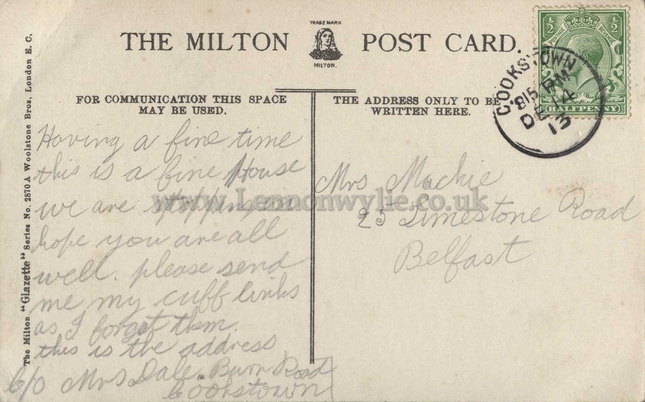 TRADE MARK
MILTON.
THE MILTON POST CARD.
FOR COMMUNICATION THIS SPACE
MAY BE USED.
THE ADDRESS ONLY TO BE
WRITTEN HERE.
½ ½
HALFPENNY
COOKSTOWN
815 PM
DE 14
13
Having a fine time
this is a fine House
we are stopping in
hope you are all
well. please send
me my cuff links
as I forgot them.
this is the address
C/O Mrs Dale Burn Road
Cookstown
Mrs Mackie
25 Limestone Road
Belfast
www.Lennonwylie.co.uk
The Milton "Glazette" Series No. 2870 A Woolstone Bros. London E. C.